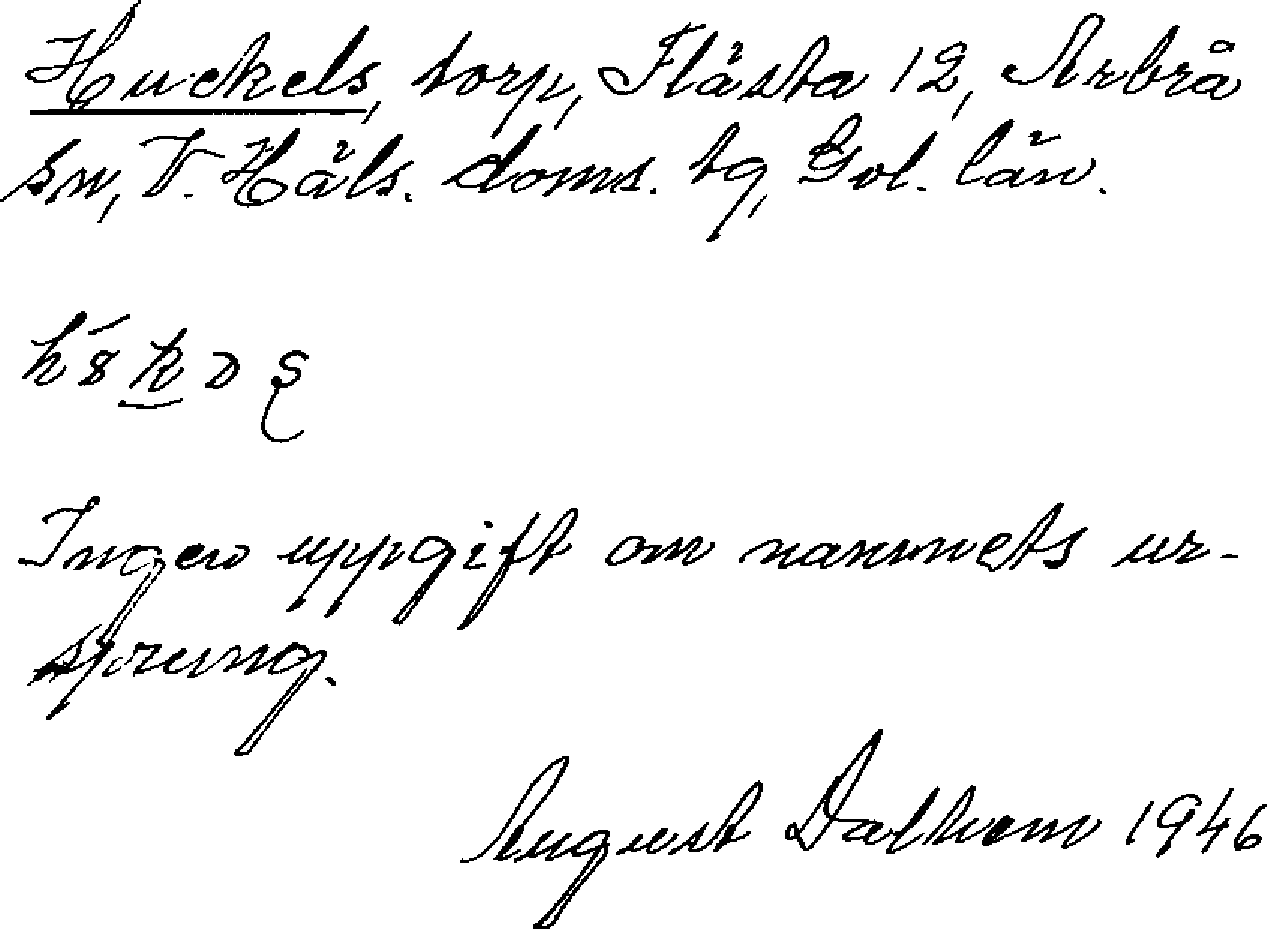 Huckels, torp, Flästa 12, Arbrå
sn, V. Häls. doms. tg, Gvl. län.
Ingen uppgift om namnets ur-
sprung.
August Dalhem 1946